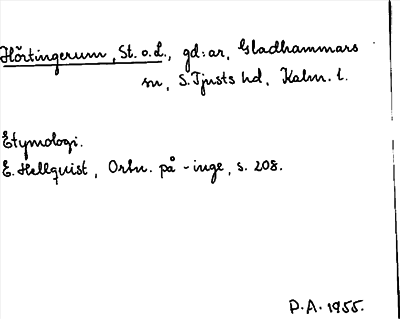 Hörtingerum, St. o. L., gd:ar, Gladhammars
sn, S. Tjusts hd, Kalm. l.
Etymologi.
E. Hellquist, Ortn. på -inge, s. 208.
P.A. 1955.